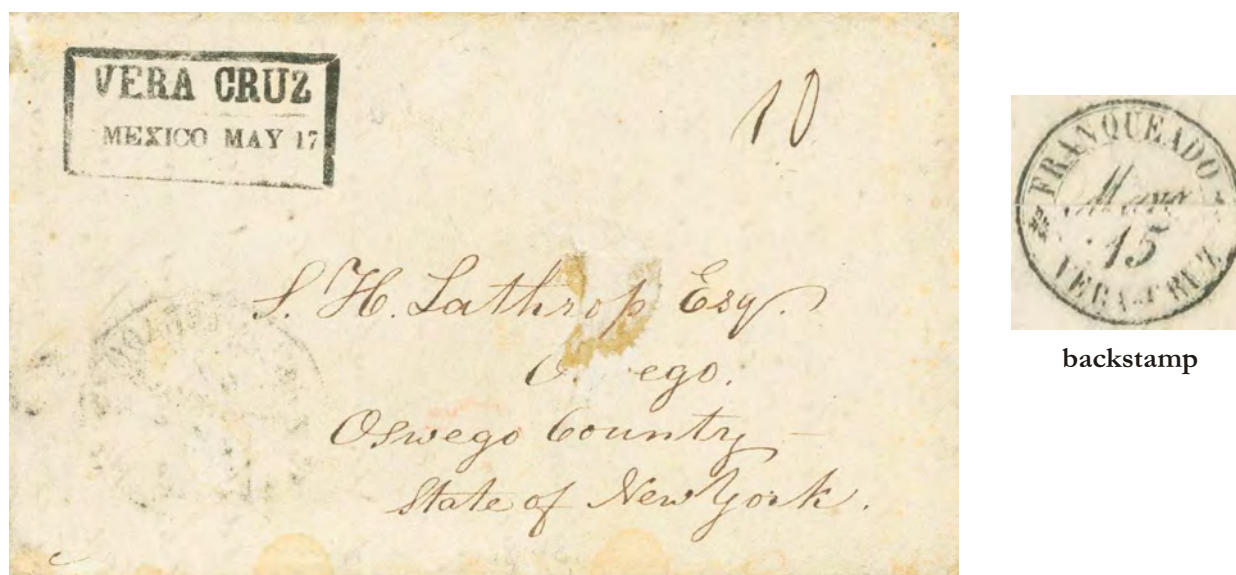 VERA CRUZ
MEXICO MAY 17
10
S. H. Lathrop Esq.
O ego.
Oswego County –
State of New York.
FRANQUEADO
Mayo
15
VERA-CRUZ
backstamp